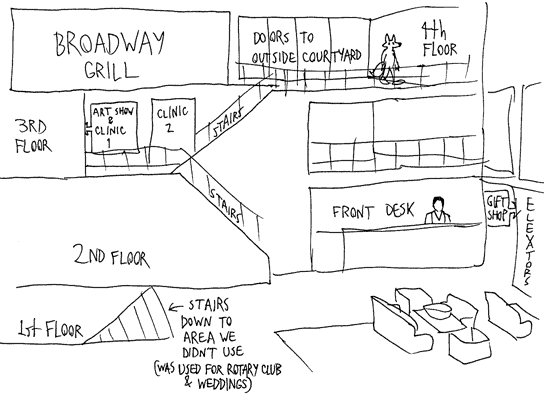 BROADWAY
GRILL
DOORS TO
OUTSIDE COURTYARD
4th
FLOOR
3RD
FLOOR
ART SHOW
&
CLINIC
1
CLINIC
2
STAIRS
STAIRS
FRONT DESK
GIFT
SHOP
ELEVATORS
2ND FLOOR
1st FLOOR
← STAIRS
DOWN TO
AREA WE
DIDN'T USE
(WAS USED FOR ROTARY CLUB
& WEDDINGS)